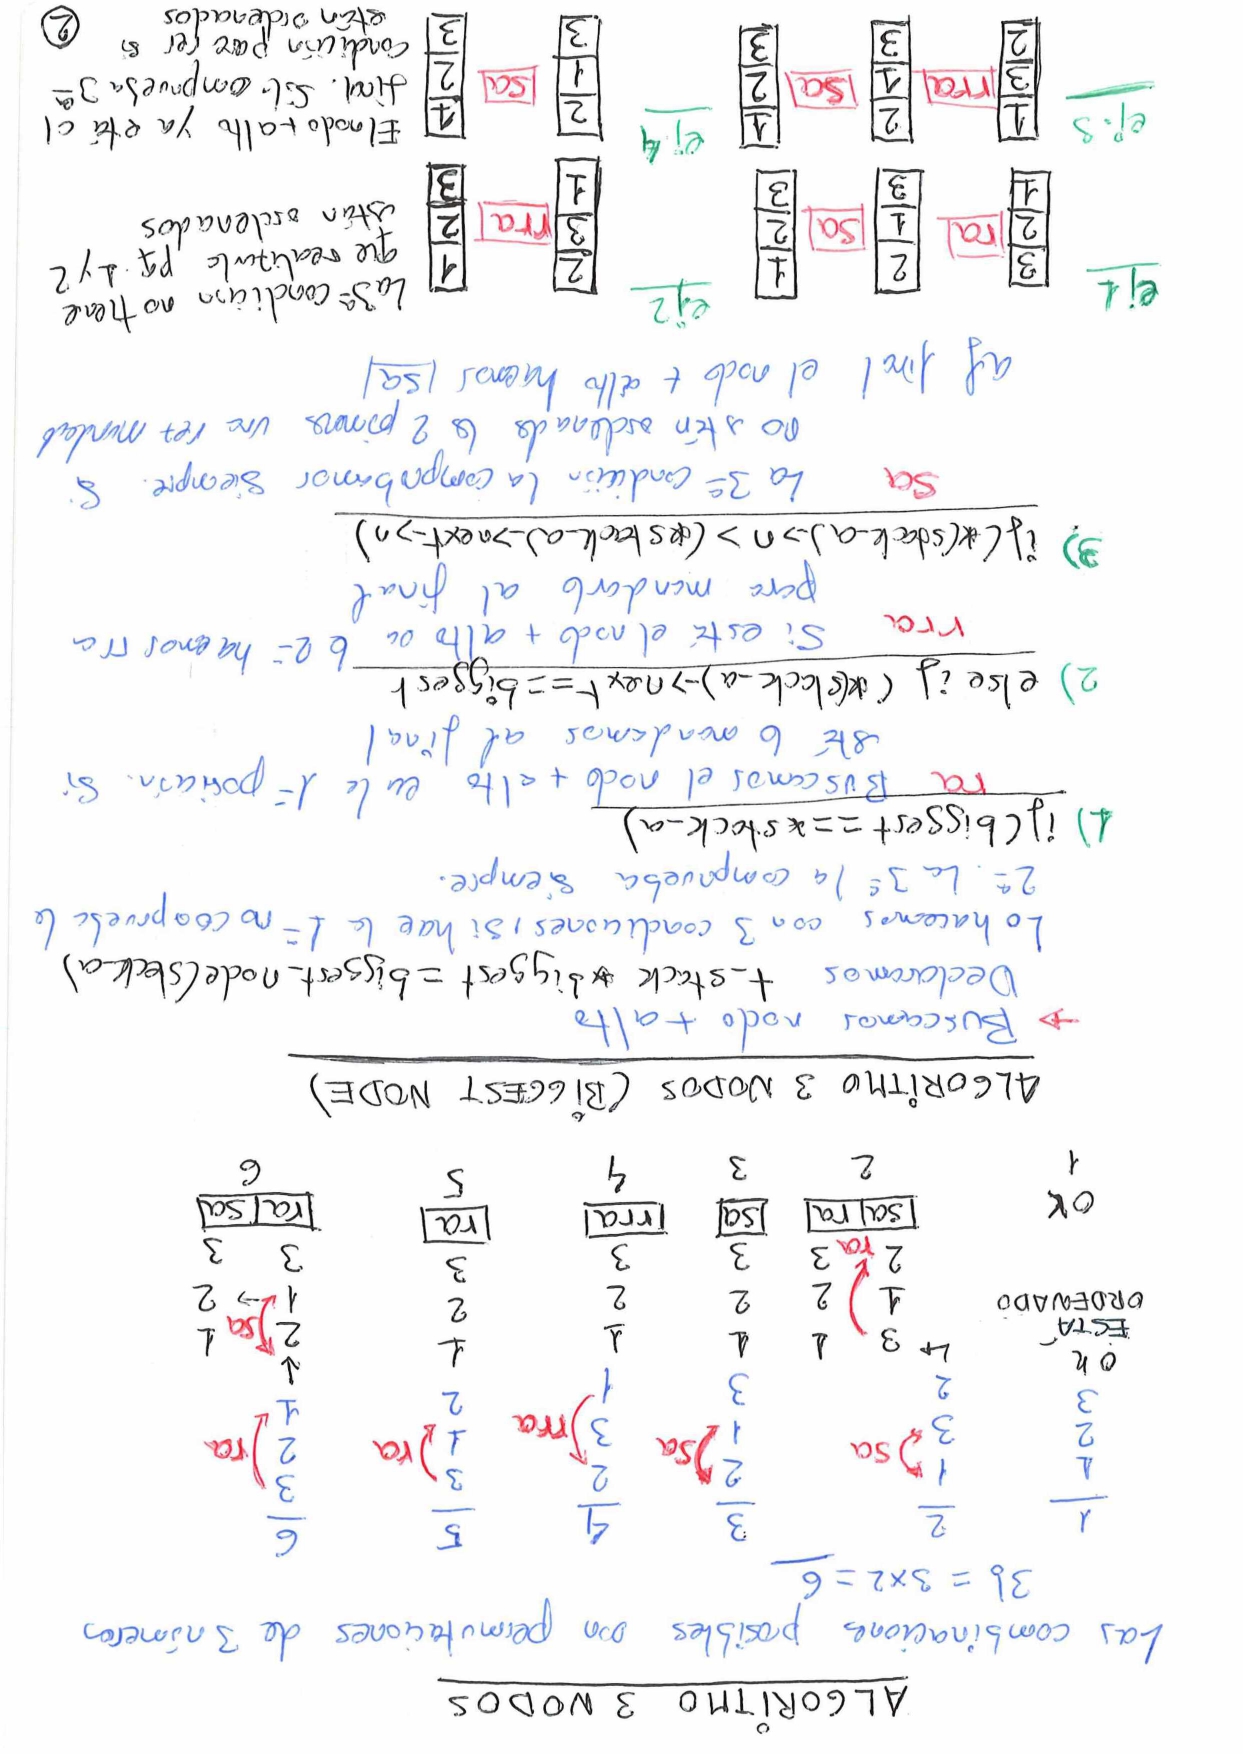 ALGORITMO 3 NODOS
Las combinaciones posibles son permutaciones de 3 números
3! = 3x2 = 6
1 2 3 4 5 6
1 1 2 2 3 3
2 3 sa 1 sa 3 rra 1 ra 2 ra
3 2 3 1 2 1
OK
ESTÁ
ORDENADO
3 1 1 1 1 2 1
1 2 2 2 2 1 sa → 2
2 ra 3 3 3 3 3 3
OK sa ra sa rra ra ra sa
1 2 3 4 5 6
ALGORITMO 3 NODOS (BIGGEST NODE)
→ Buscamos nodo + alto
Declaramos t_stack *biggest = biggest_node(stack_a)
Lo hacemos con 3 condiciones, si hace la 1ª no comprueba la
2ª. La 3ª la comprueba siempre.
1) if(biggest == *stack_a)
ra Buscamos el nodo + alto en la 1ª posición. Si
sté lo mandamos al final
2) else if (*(stack_a)->next == biggest
rra Si está el nodo + alto en la 2ª hacemos rra
para mandarlo al final
3) if(*(stack_a)->n > (*stack_a)->next->n)
sa La 3ª condición la comprobamos siempre. Si
no stén ordenados los 2 primeros una vez mandado
al final el nodo + alto hacemos |sa|
ej 1
3 2 1
2 ra 1 sa 2
1 3 3
ej 2
2 1
3 rra 2
1 3
La 3ª condición no tiene
que realizarla pq. 1 y 2
están ordenados
ej. 3
1 2 1
3 rra 1 sa 2
2 3 3
ej. 4
2 1
1 sa 2
3 3
El nodo + alto ya etá al
final. Sólo comprueba 3ª
condición para ver si
están ordenados
2